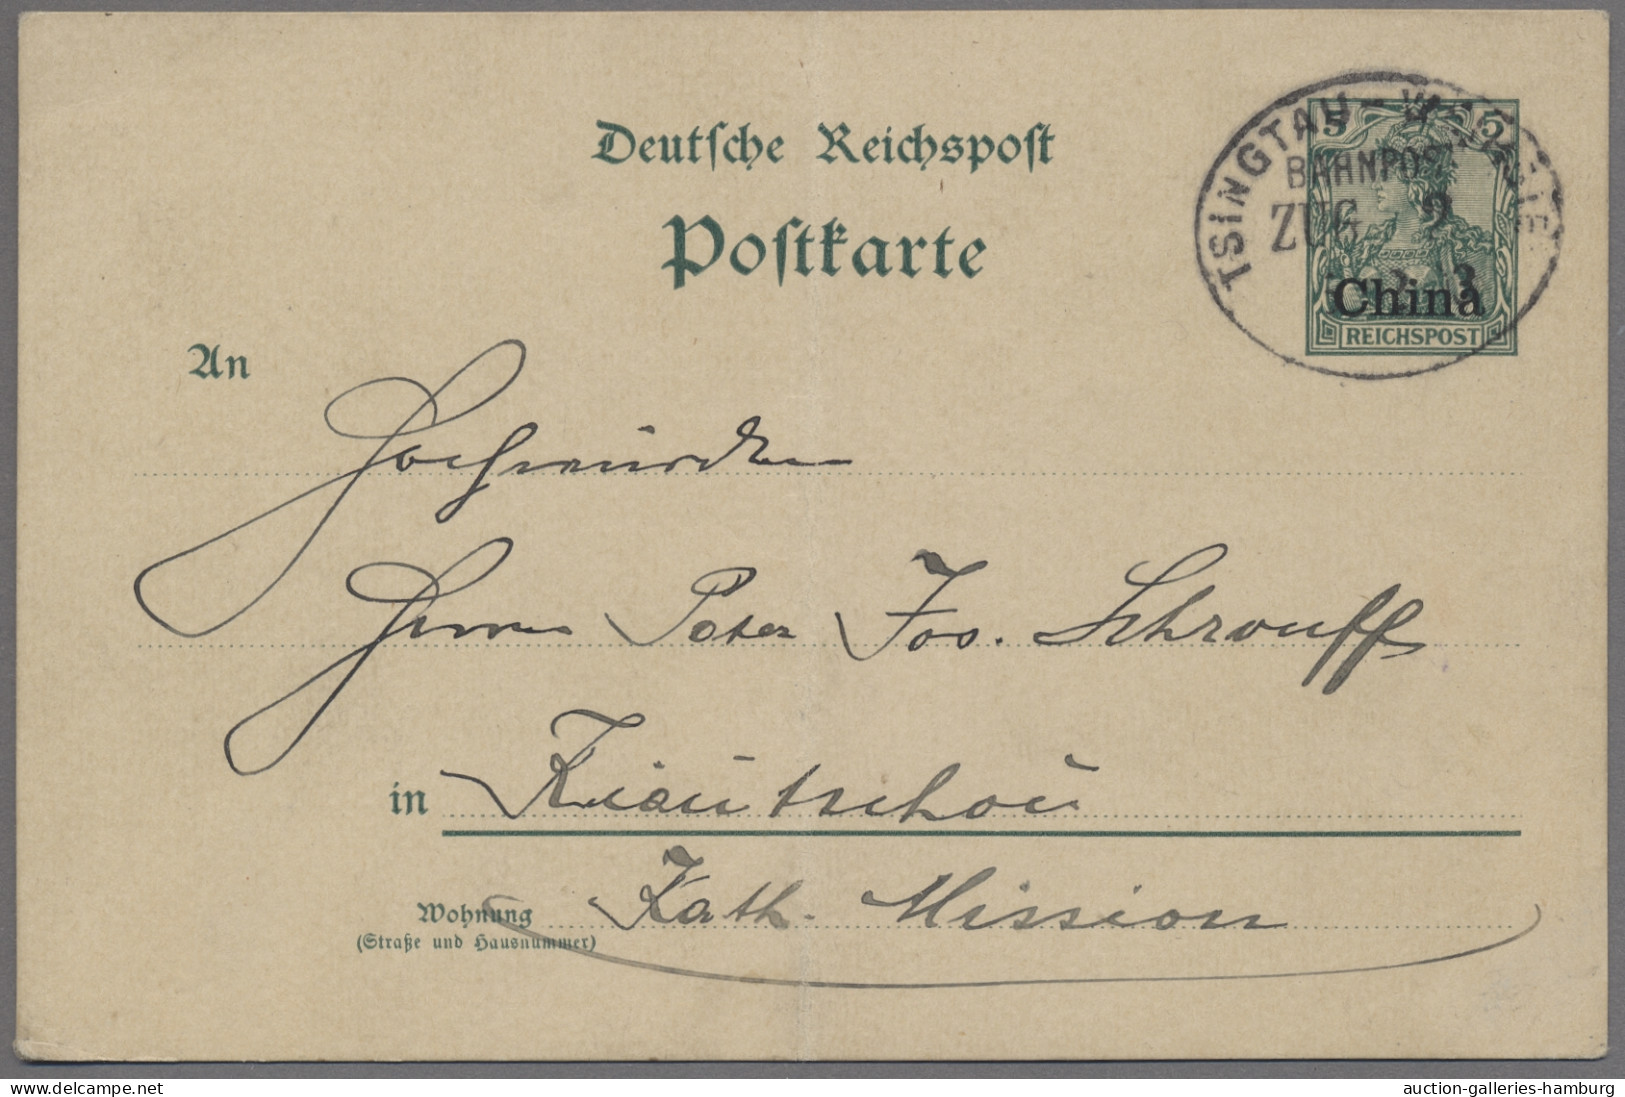 Deutsche Reichspost
Postkarte
TSINGTAU –
BAHNPOST
ZUG 2
5 5
China
REICHSPOST
An
Hochwürden
Herrn Pater Jos. Schrouff
in Kiautschou
Kath. Mission
Wohnung
(Straße und Hausnummer)
delcampe.net
auction-galleries-hamburg